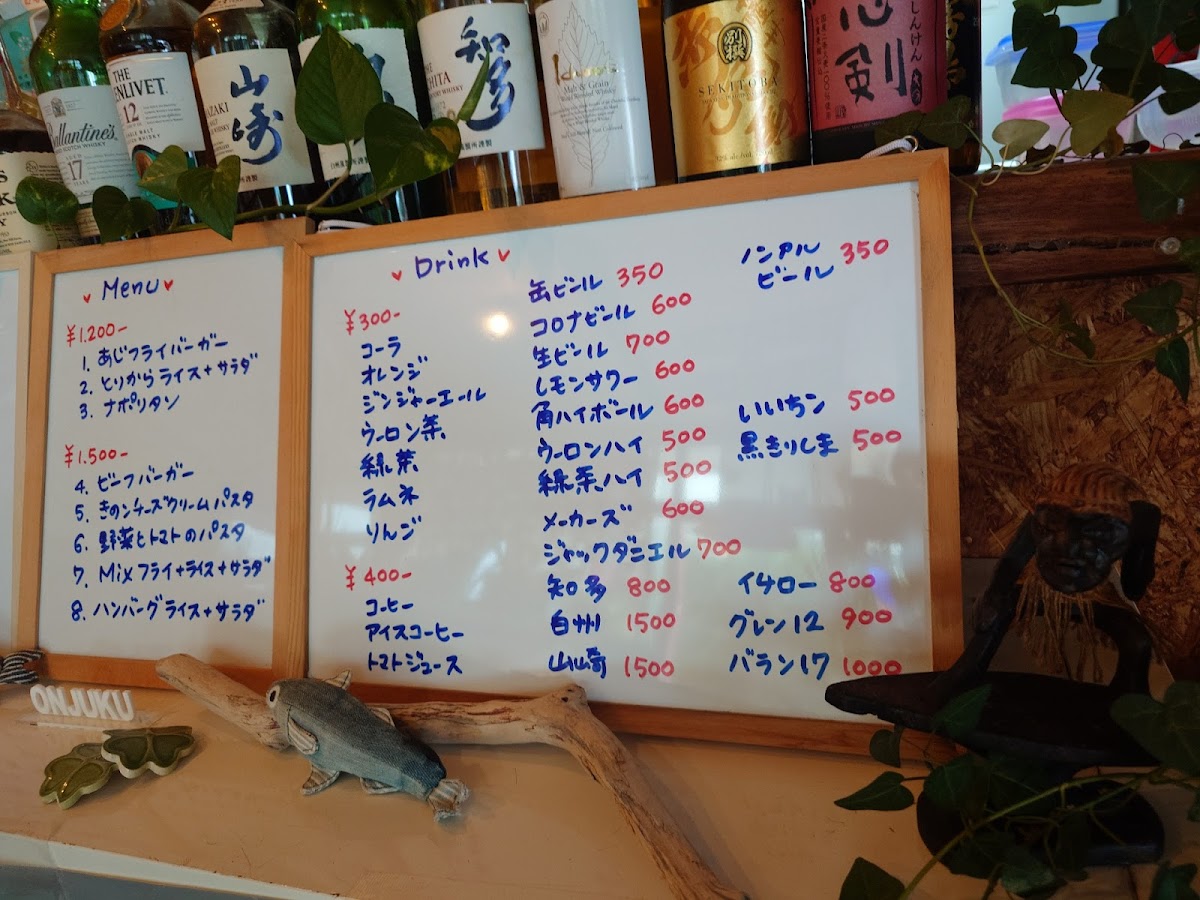 Ballantine's
AGED 17 YEARS
THE
12
SINGLE MALT
山崎
知多
Malt & Grain
別撰
SEKITOBA
しんけん
心剣
Menu
¥1.200-
1. あじフライバーガー
2. とりからライス+サラダ
3. ナポリタン
¥1.500-
4. ビーフバーガー
5. きのこチーズクリームパスタ
6. 野菜とトマトのパスタ
7. Mixフライ+ライス+サラダ
8. ハンバーグライス+サラダ
Drink
¥300-
コーラ
オレンジ
ジンジャーエール
ウーロン茶
緑茶
ラムネ
りんご
¥400-
コーヒー
アイスコーヒー
トマトジュース
缶ビール 350
コロナビール 600
生ビール 700
レモンサワー 600
角ハイボール 600
ウーロンハイ 500
緑茶ハイ 500
メーカーズ 600
ジャックダニエル 700
知多 800
白州 1500
山崎 1500
ノンアル
ビール 350
いいちこ 500
黒きりしま 500
イチロー 800
グレン12 900
バラン17 1000
ONJUKU